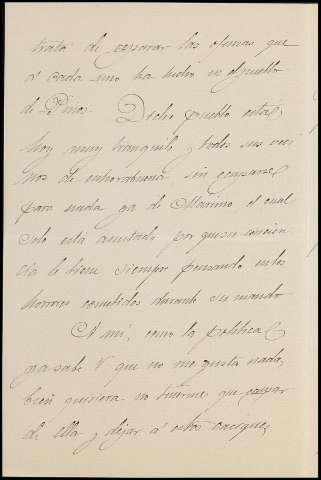 trata de reparar las ofensas que
á cada uno ha hecho en el pueblo
de Pinos. Dicho pueblo está,
hoy muy tranquilo y todos sus veci
nos de enhorabuena, sin ocuparse
para nada ya de Marino el cual
solo está asustado por que su concien
cia le tiene siempre pensando en los
horrores cometidos durante su mando
A mí, como la política
ya sabe V. que no me gusta nada,
bien quisiera no tenerme que ocupar
de ella y dejar á estos caciques